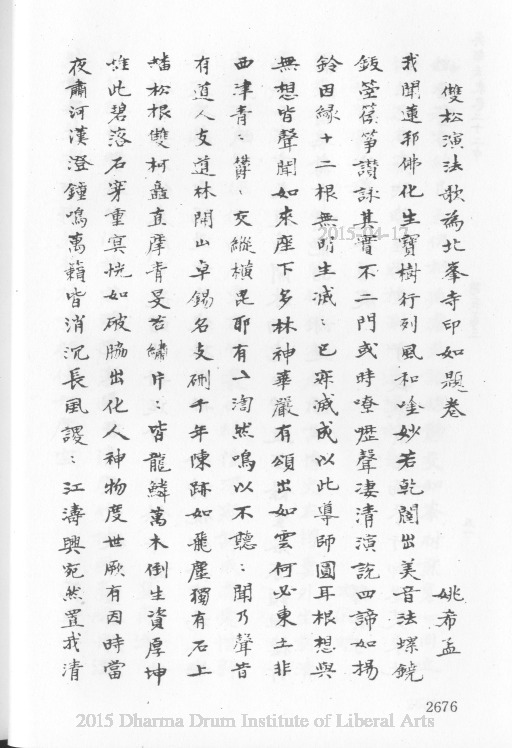 雙松演法歌為北峯寺印如題卷
姚希孟
我聞蓮邦佛化生寶樹行列風和唫妙若乾闥出美音法螺鐃
鈸箜篌箏讚詠其實不二門或時嘹嚦聲凄清演說四諦如楊
鈴因緣十二根無明生滅〻已寂滅成以此導師圓耳根想與
無想皆聲聞如來座下多林神華嚴有頌出如雲何必東土非
西津青〻欝〻交縱橫毘耶有一淘然鳴以不聽〻聞乃聲昔
有道人支道林開山卓錫名支硎千年陳跡如飛塵獨有石上
蟠松根雙柯矗直摩青旻苔繡片〻皆龍鱗萬木倒生資厚坤
惟此碧落石穿重冥恍如破脇出化人神物度世厥有因時當
夜肅河漢澄鍾鳴萬籟皆消沉長風謖〻江濤興宛然置我清
2015-04-17
2676
2015 Dharma Drum Institute of Liberal Arts